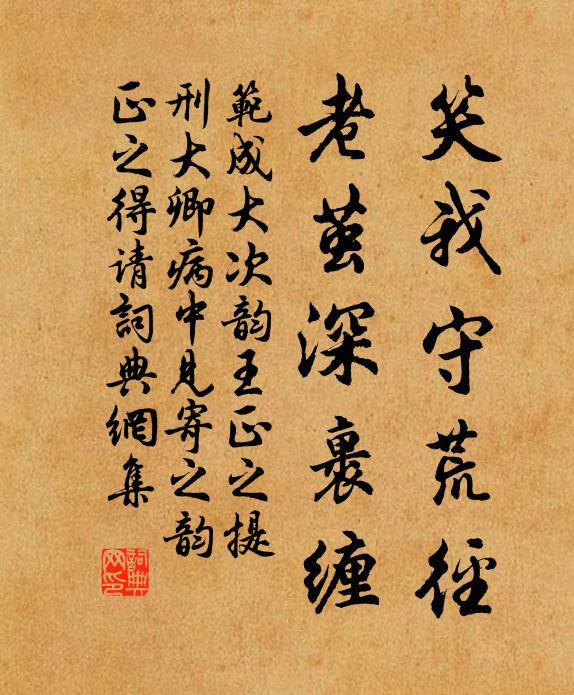 笑我守荒径
老茧深裹缠
範成大次韵王正之提
刑大卿病中見寄之韵
正之得请詞典網集
詞典
网印